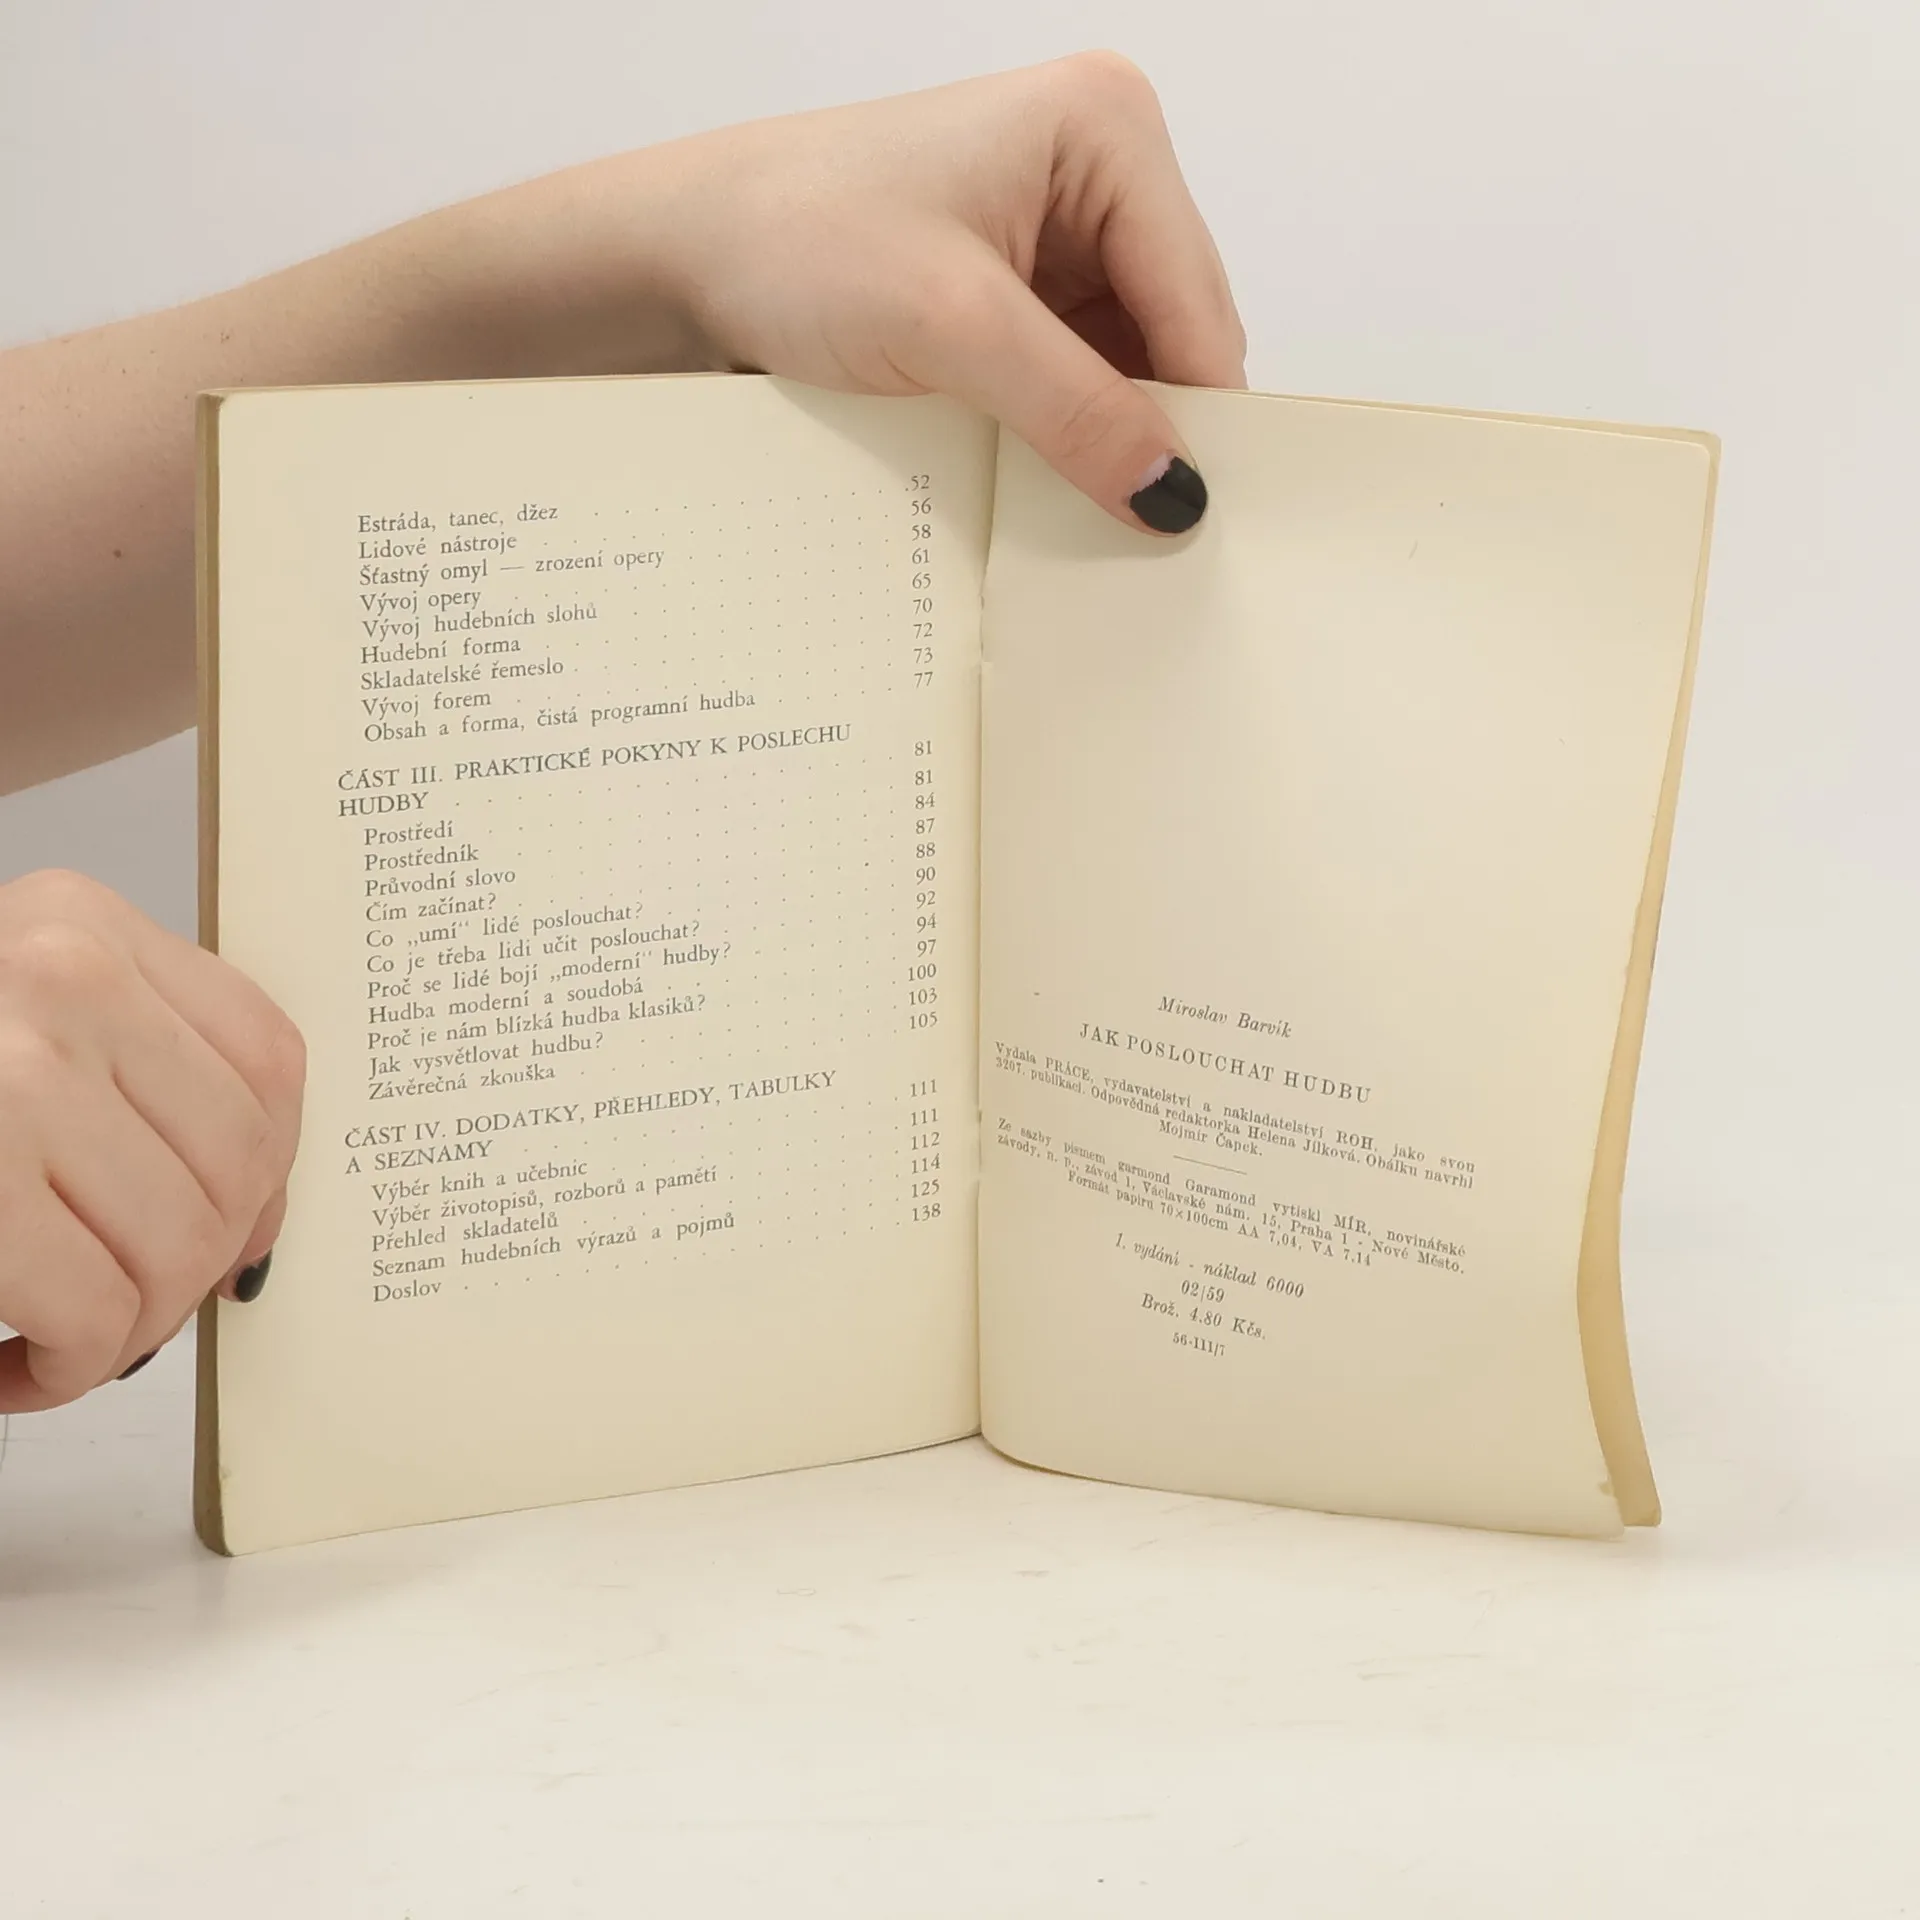 Estráda, tanec, džez . . . . . . . . . . . 52
Lidové nástroje . . . . . . . . . . . . 56
Šťastný omyl — zrození opery . . . . . . . . 58
Vývoj opery . . . . . . . . . . . . . 61
Vývoj hudebních slohů . . . . . . . . . . 65
Hudební forma . . . . . . . . . . . . 70
Skladatelské řemeslo . . . . . . . . . . . 72
Vývoj forem . . . . . . . . . . . . . 73
Obsah a forma, čistá programní hudba . . . . . 77
ČÁST III. PRAKTICKÉ POKYNY K POSLECHU
HUDBY . . . . . . . . . . . . . . . 81
Prostředí . . . . . . . . . . . . . . 81
Prostředník . . . . . . . . . . . . . 84
Průvodní slovo . . . . . . . . . . . . 87
Čím začínat? . . . . . . . . . . . . . 88
Co „umí“ lidé poslouchat? . . . . . . . . . 90
Co je třeba lidi učit poslouchat? . . . . . . . 92
Proč se lidé bojí „moderní“ hudby? . . . . . . 94
Hudba moderní a soudobá . . . . . . . . . 97
Proč je nám blízká hudba klasiků? . . . . . . 100
Jak vysvětlovat hudbu? . . . . . . . . . . 103
Závěrečná zkouška . . . . . . . . . . . 105
ČÁST IV. DODATKY, PŘEHLEDY, TABULKY
A SEZNAMY . . . . . . . . . . . . . 111
Výběr knih a učebnic . . . . . . . . . . 111
Výběr životopisů, rozborů a pamětí . . . . . . 112
Přehled skladatelů . . . . . . . . . . . 114
Seznam hudebních výrazů a pojmů . . . . . . 125
Doslov . . . . . . . . . . . . . . . 138
Miroslav Barvík
JAK POSLOUCHAT HUDBU
Vydala PRÁCE, vydavatelství a nakladatelství ROH, jako svou
3207. publikaci. Odpovědná redaktorka Helena Jílková. Obálku navrhl
Mojmír Čapek.
Ze sazby písmem garmond Garamond vytiskl MÍR, novinářské
závody, n. p., závod 1, Václavské nám. 15, Praha 1 - Nové Město.
Formát papíru 70×100cm AA 7,04, VA 7,14
1. vydání - náklad 6000
02/59
Brož. 4.80 Kčs.
56-III/7